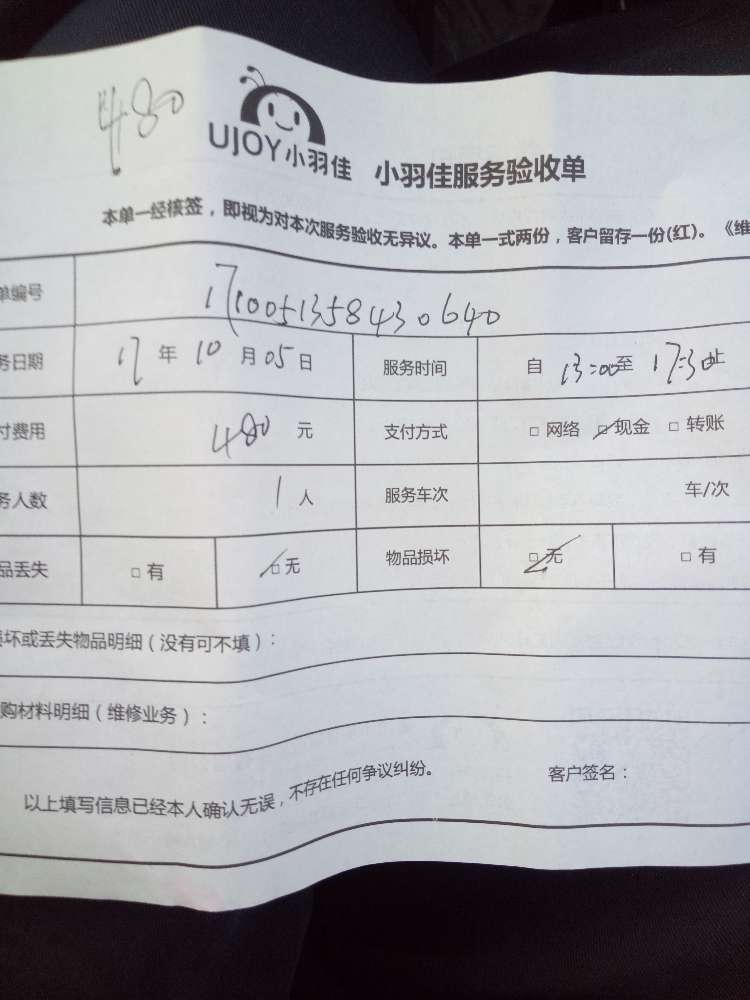 480
UJOY小羽佳 小羽佳服务验收单
本单一经核签，即视为对本次服务验收无异议。本单一式两份，客户留存一份(红)。《维
单编号 171005135843 0640
务日期 17 年 10 月 05 日 服务时间 自 13:00 至 17:30 止
付费用 480 元 支付方式 □ 网络 ☑ 现金 □ 转账
务人数 1 人 服务车次 车/次
品丢失 □ 有 ☑ 无 物品损坏 ☑ 无 □ 有
损坏或丢失物品明细（没有可不填）：
购材料明细（维修业务）：
以上填写信息已经本人确认无误，不存在任何争议纠纷。 客户签名：